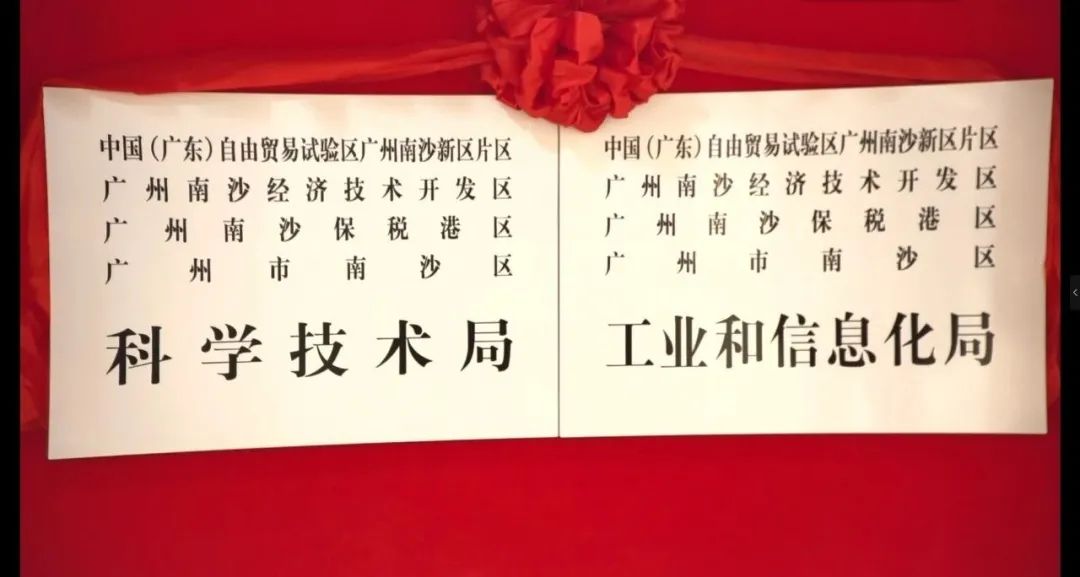 中国(广东)自由贸易试验区广州南沙新区片区
广州南沙经济技术开发区
广州南沙保税港区
广州市南沙区
科学技术局
中国(广东)自由贸易试验区广州南沙新区片区
广州南沙经济技术开发区
广州南沙保税港区
广州市南沙区
工业和信息化局